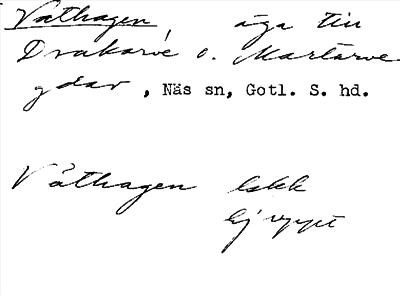 Vathagen, äga till
Drakarve o. Martarve
gdar, Näs sn, Gotl. S. hd.
Våthagen Eskk
Ej uppt